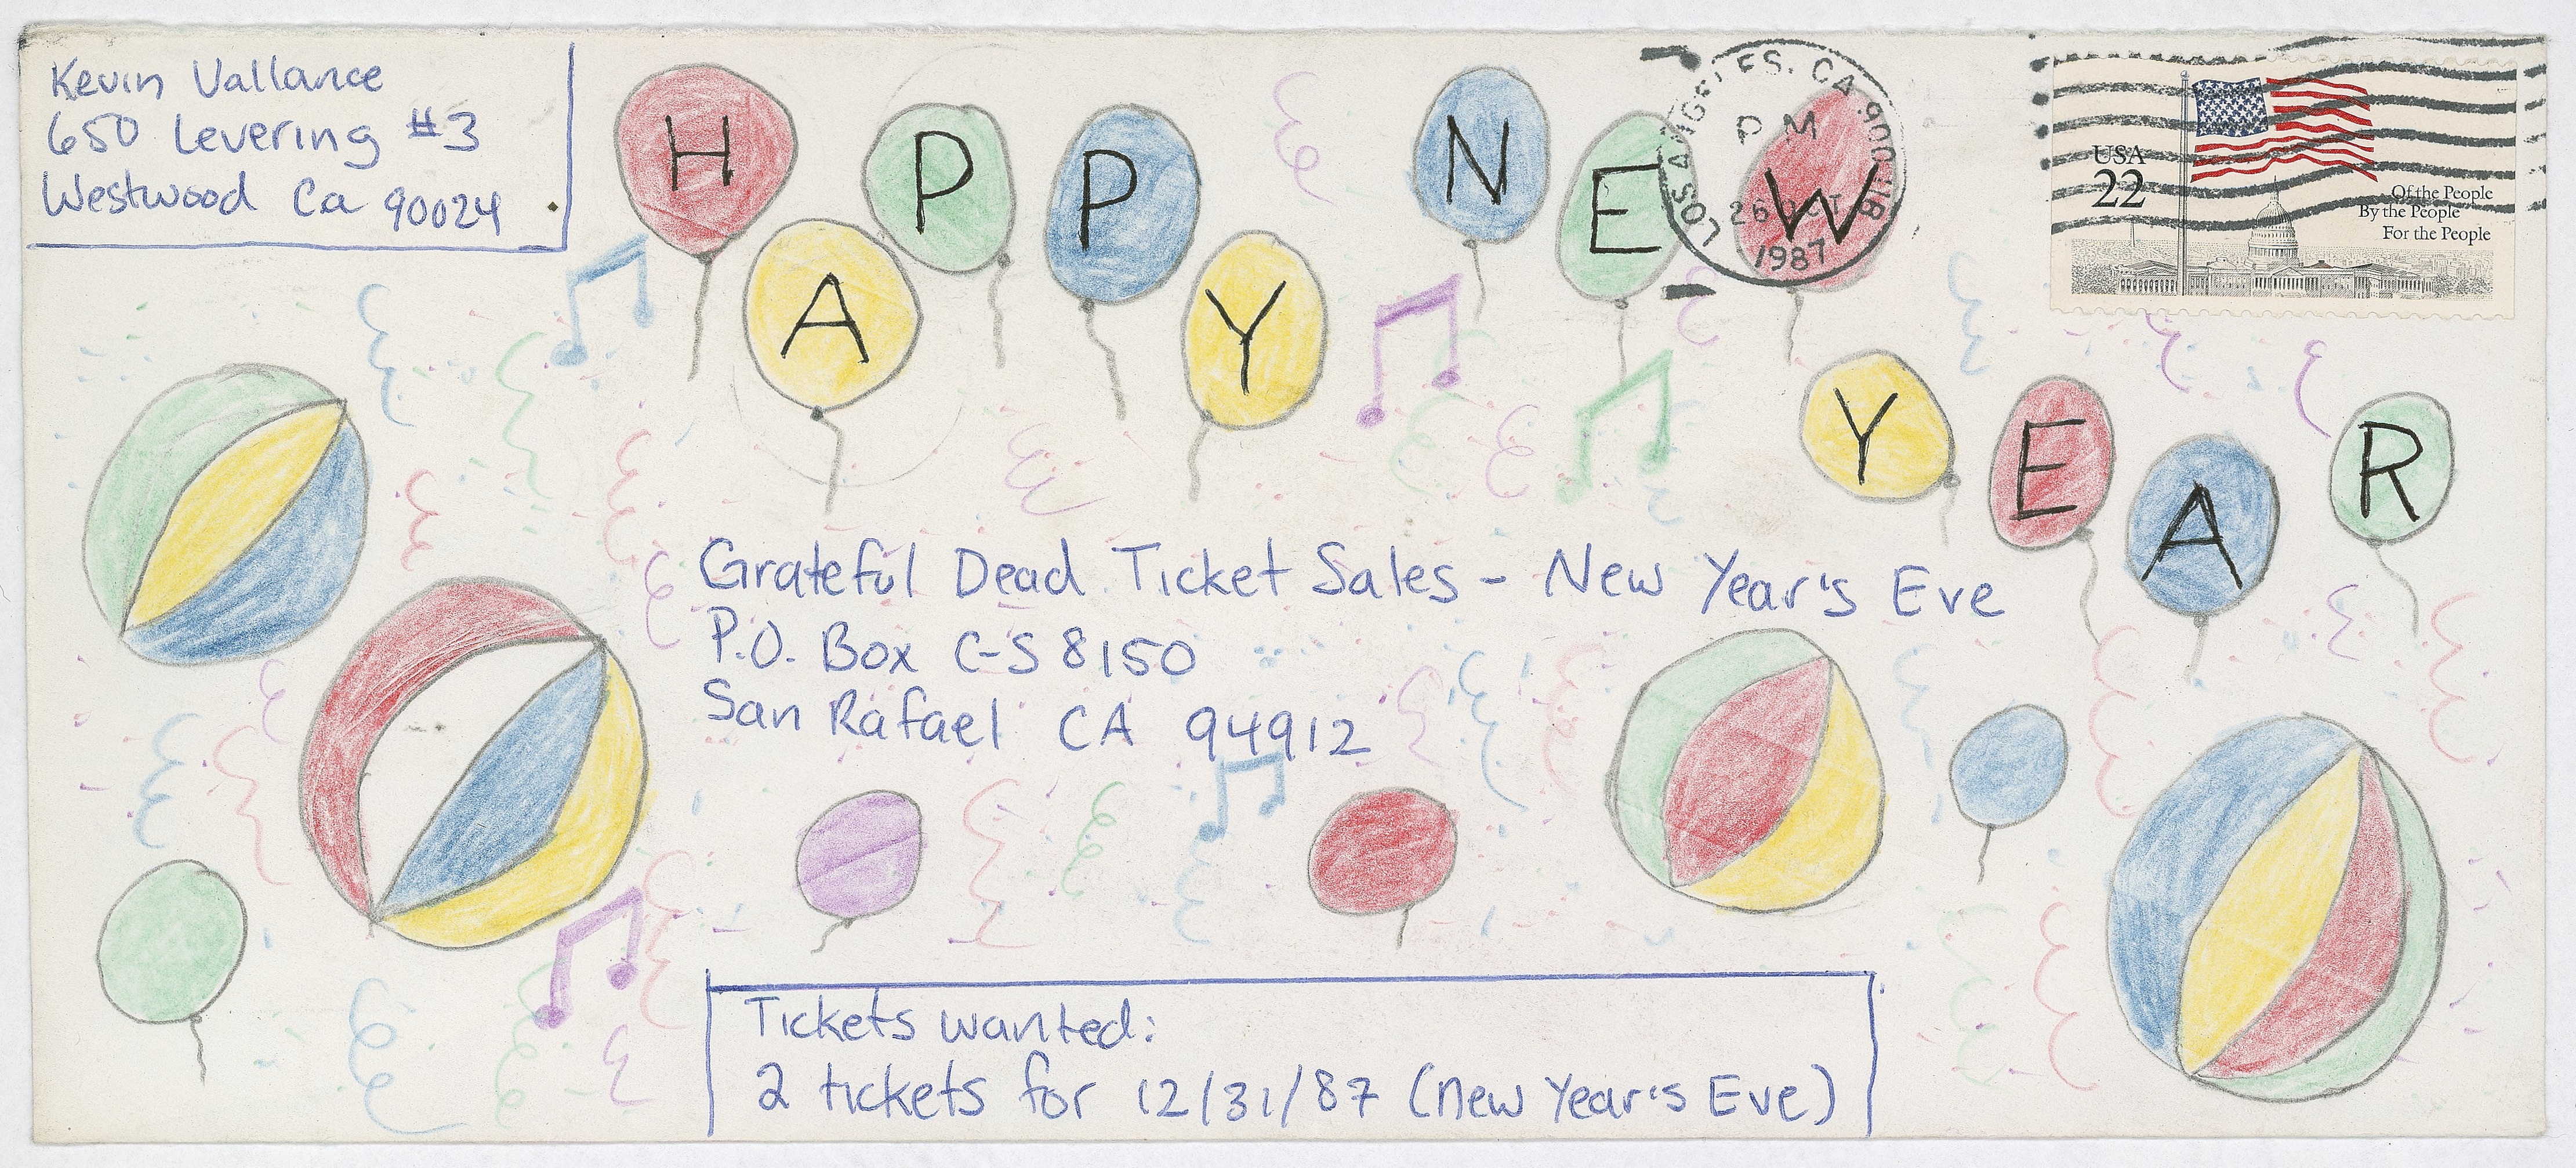 Kevin Vallance
650 Levering #3
Westwood Ca 90024
HAPPY NEW YEAR
LOS ANGELES, CA 900
PM
26 OCT
1987
USA
22
Of the People
By the People
For the People
Grateful Dead Ticket Sales - New Year's Eve
P.O. Box C-S 8150
San Rafael CA 94912
Tickets wanted:
2 tickets for 12/31/87 (New Year's Eve)